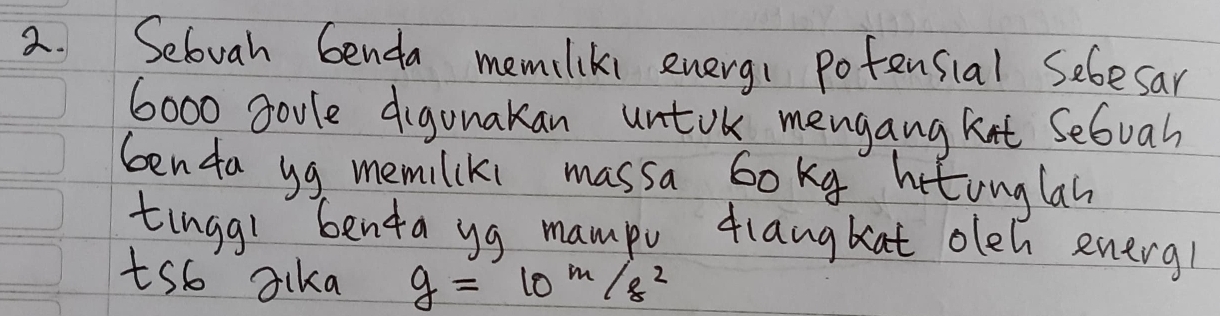 2. Sebuah benda memiliki energi potensial sebesar
6000 joule digunakan untuk mengangkat sebuah
benda yg memiliki massa 60 kg hitunglah
tinggi benda yg mampu diangkat oleh energi
tsb jika g = 10 m/s²